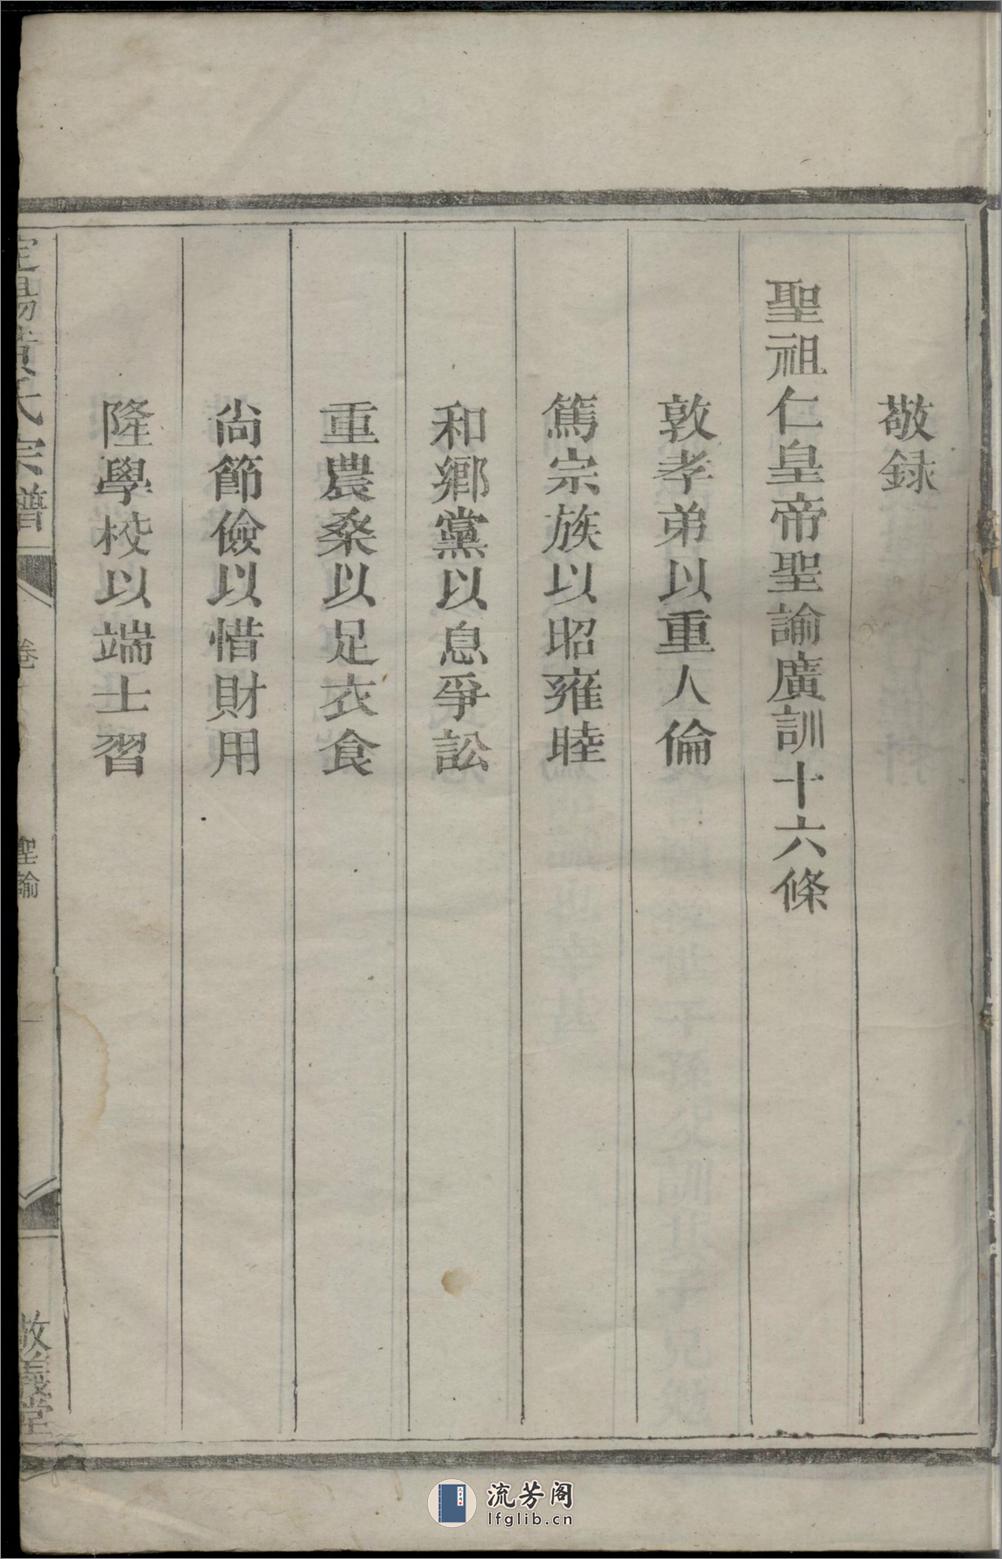 敬録
聖祖仁皇帝聖諭廣訓十六條
敦孝弟以重人倫
篤宗族以昭雍睦
和鄉黨以息爭訟
重農桑以足衣食
尙節儉以惜財用
隆學校以端士習
黄氏宗譜
卷
聖諭
一
敬義堂
流芳阁
lfglib.cn